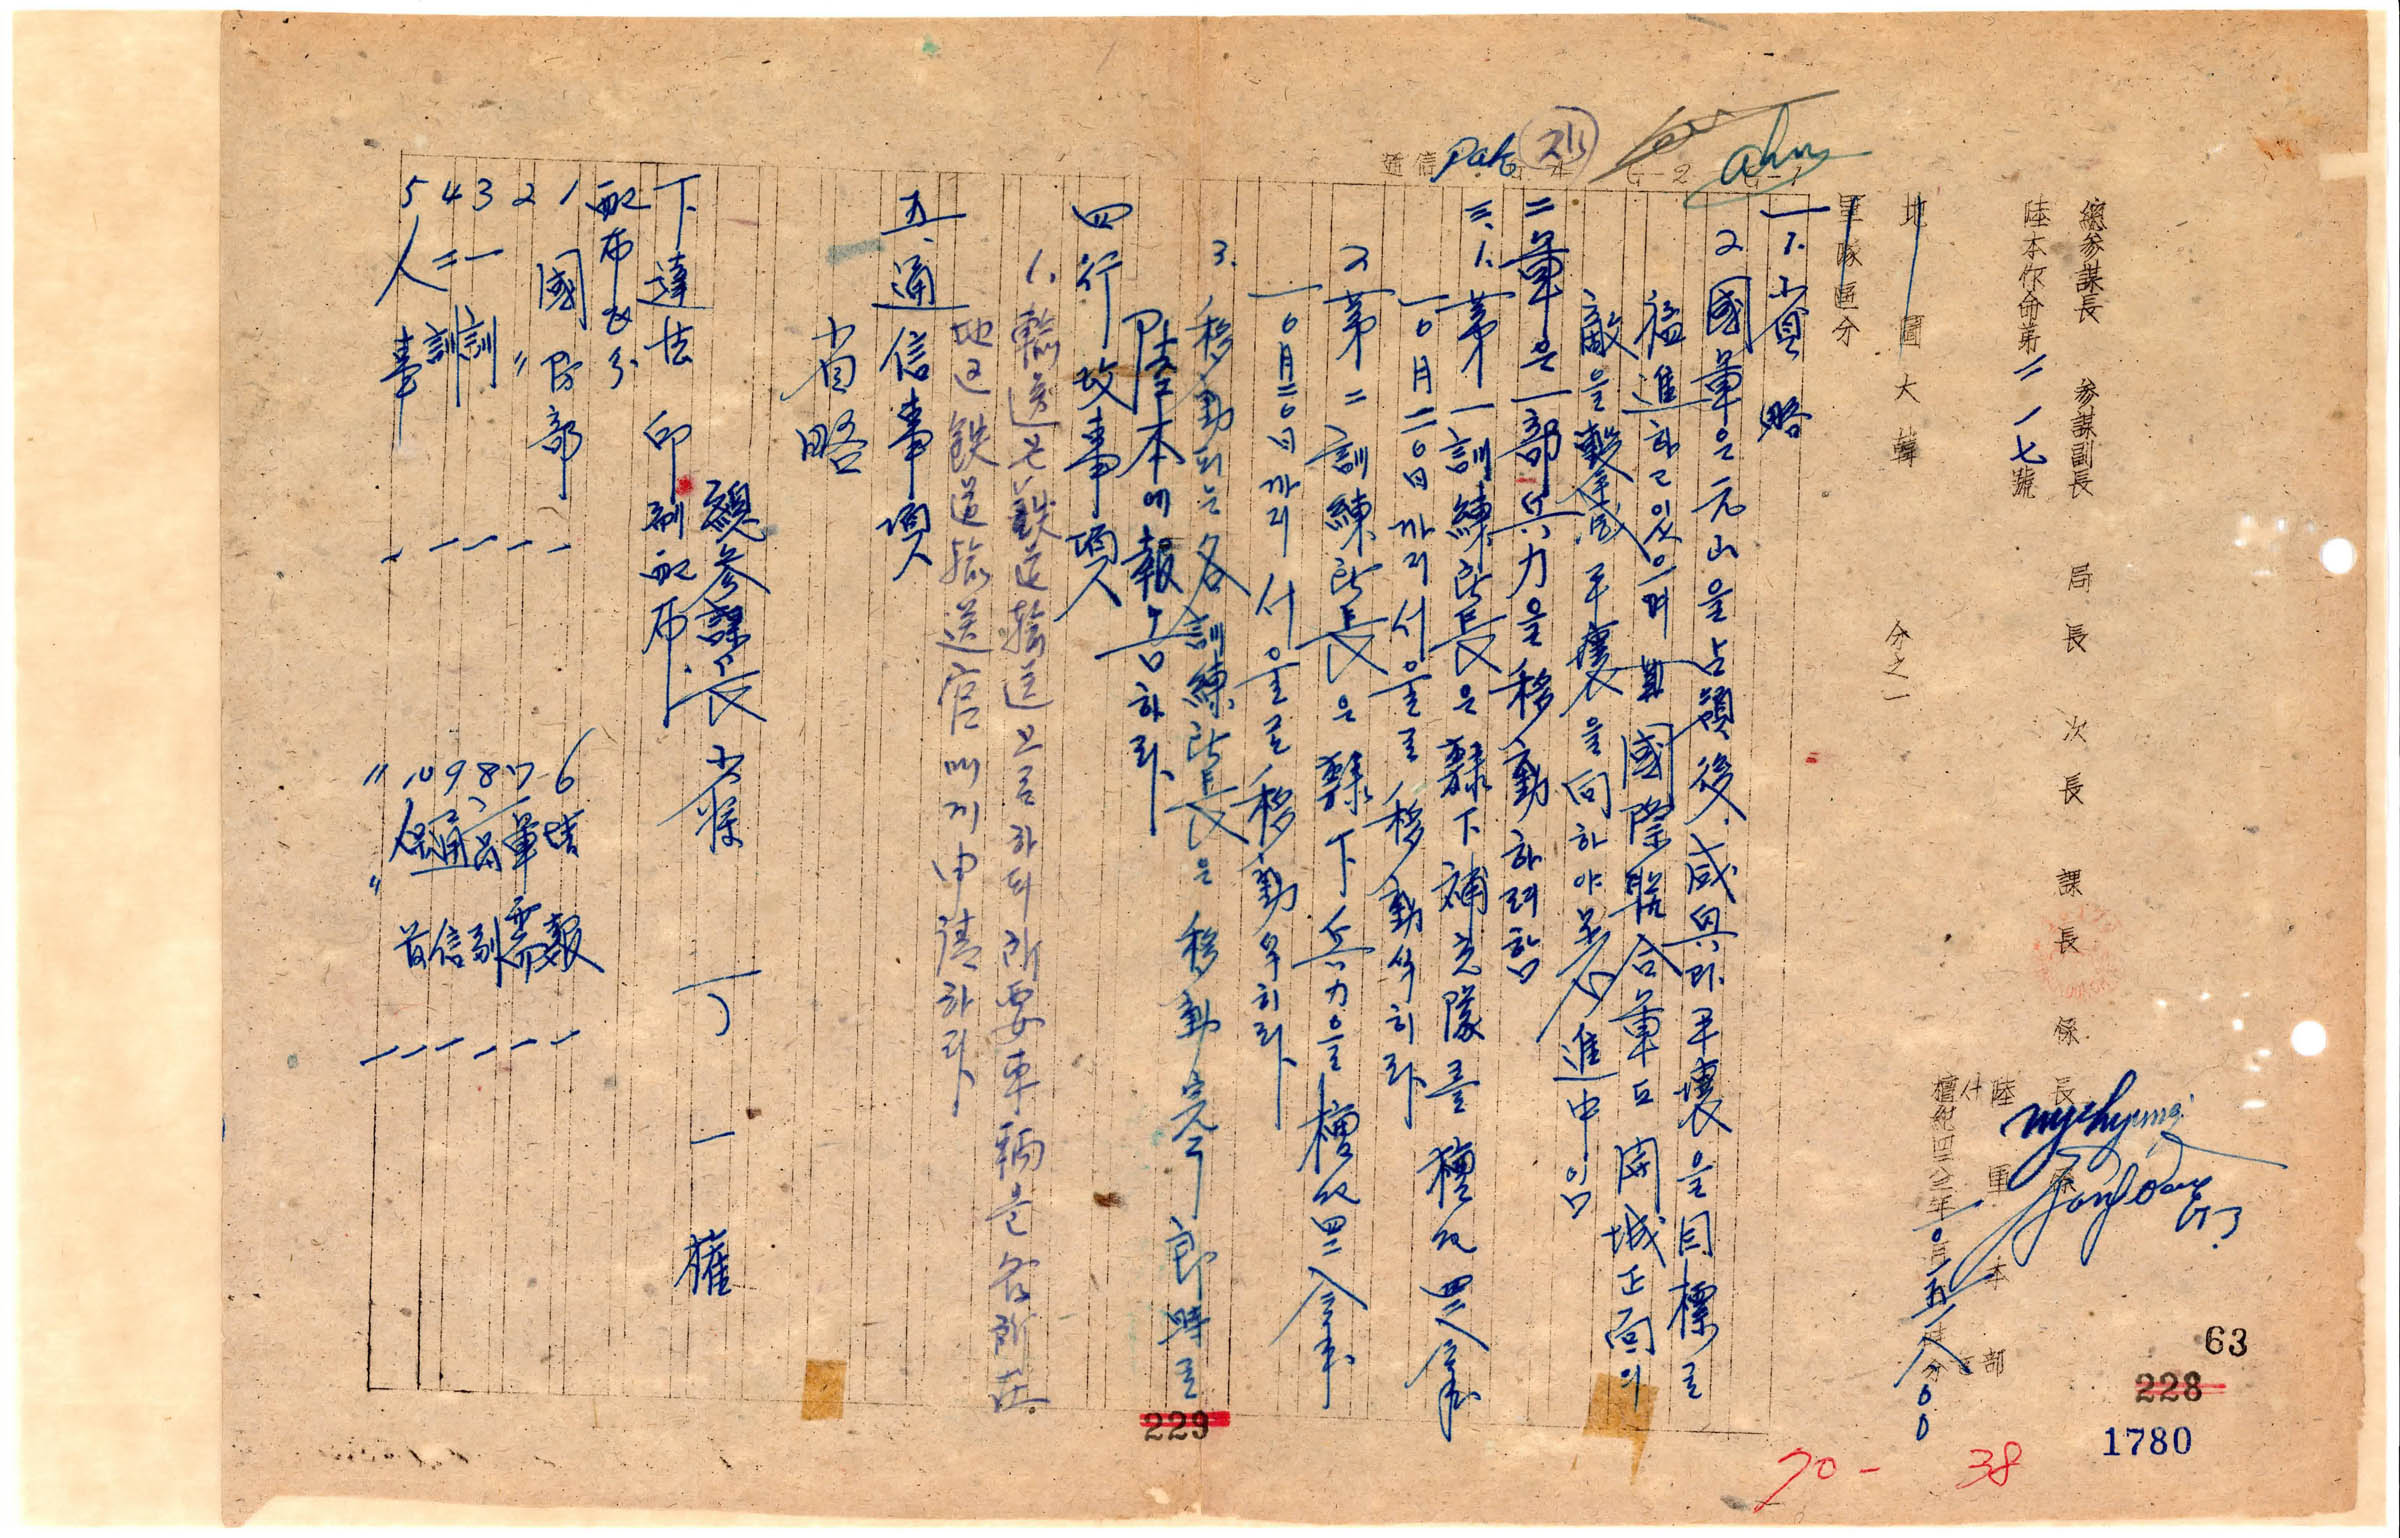 總參謀長 參謀副長 局長 次長 課長 係長
陸本作命第二一七號
陸軍本部
檀紀四二八三年一0月一五日一八00
地圖 大韓 分之一
軍隊區分
通信
G-2
G-1
Pak
Ahn
一 1. 省略
2 國軍은 元山을 占領後 咸興 及 平壤을 目標로
猛進하고 있으며 國際聯合軍도 開城正面의
敵을 擊滅 平壤을 向하야 進中임
二 軍은 一部兵力을 移動하려함
三、1. 第一訓練所長은 隷下補充隊를 檀紀四二八三年
一0月二0日까지 서울로 移動식히라
2 第二訓練所長은 隷下兵力을 檀紀四二八三年
一0月二0日까지 서울로 移動식히라
3. 移動되는 各訓練所長은 移動完了 卽時로
陸本에 報告하라
四 行政事項
1. 輸送은 鉄道輸送으로 하되 所要車輛은 各所在
地区 鉄道輸送官에게 申請하라
五、通信事項
省略
總參謀長 少將 丁一權
下達法 印刷配布
配布区分
1 國防部 一
2 〃 一
3 一訓 一
4 二訓 一
5 人事 一
6 情報 一
7 軍需 一
8 高副 一
9 通信 一
63
228
229
1780
70 - 38